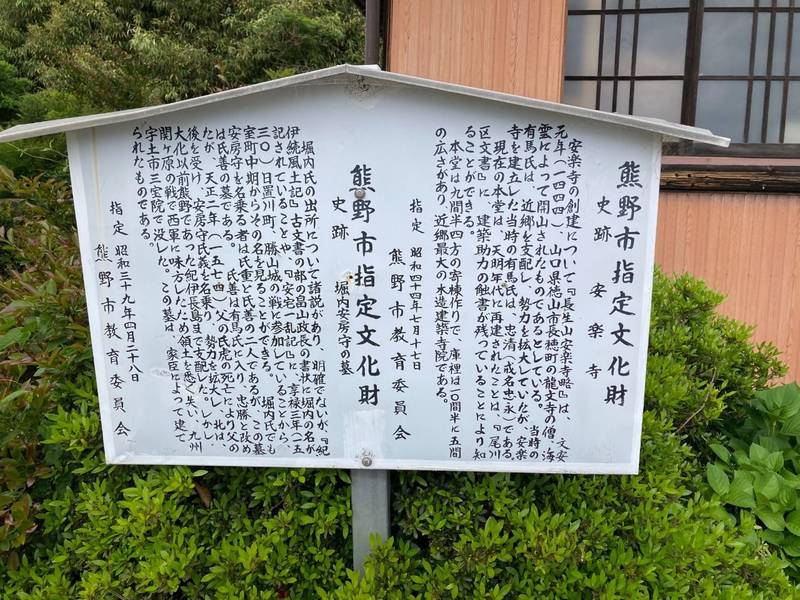 熊野市指定文化財
史跡 安楽寺
安楽寺の創建について『長生山安楽寺略』は、文安
元年(一四四四)、山口県徳山市長穂町の龍文寺の僧、海
雲によって開山されたものであるとしている。当時の
有馬氏は、近郷を支配し、勢力を拡大していたが、安楽
寺を建立した当時の有馬氏は、忠清(戒名忠永)である。
現在の本堂は、天明年代に再建されたことは、『尾川
区文書』に、建築助力の触書が残っていることにより知
ることができる。
本堂は九間半四方の寄棟作りで、庫裡は一〇間半に五間
の広さがあり、近郷最大の木造建築寺院である。
指定 昭和四十四年七月十七日
熊野市教育委員会
熊野市指定文化財
史跡 堀内安房守の墓
堀内氏の出所について諸説があり、明確でないが、『紀
伊続風土記』古文書の部の畠山政長の書状に堀内の名が
記されていることや、『安宅一乱記』に、享禄三年(一五
三〇)日置川町、勝山城の戦に参加していることから、
室町中期からその名を見ることができる。堀内氏でも
安房守を名乗る者は氏重と氏善の二人であるが、この墓
は氏善の墓である。氏善は有馬氏に入り、忠勝と改め
たが、天正二年(一五七四)父の氏虎の死亡により父の
後を受け、安房守氏義を名乗り、勢力を拡大し、北は、
大化以前熊野であった紀伊長島まで支配した。しかし、
関ヶ原の戦で西軍に味方したため領土を悉く失い、九州
宇土市三宝院で没した。この墓は、家臣によって建て
られたものである。
指定 昭和三十九年四月二十八日
熊野市教育委員会